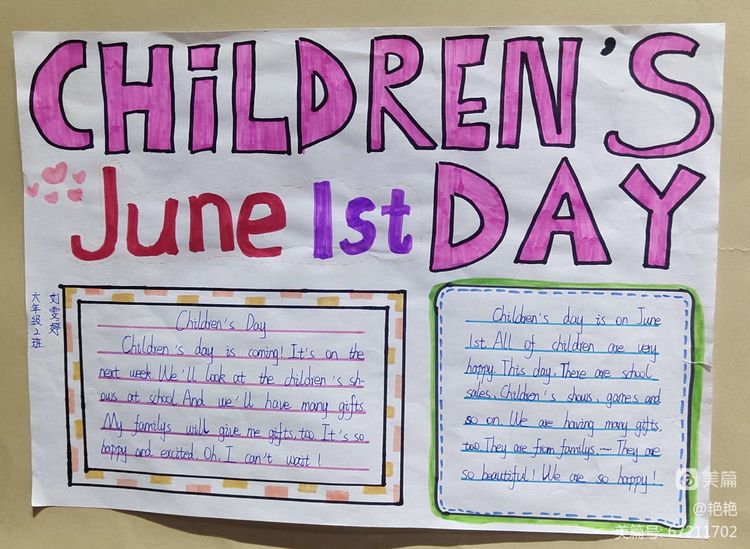 CHiLDREN'S
June 1st DAY
六年级2班
刘雯婷
Children's Day
Children's day is coming! It's on the
next week. We'll look at the children's sh-
ows at school. And we'll have many gifts.
My familys will give me gifts, too. It's so
happy and excited. Oh, I can't wait!
Children's day is on June
1st. All of children are very
happy This day. There are school
sales, Children's shows, games and
so on. We are having many gifts,
too. They are from familys.— They are
so beautiful! We are so happy!
美篇
@艳艳
美篇号: 67211702